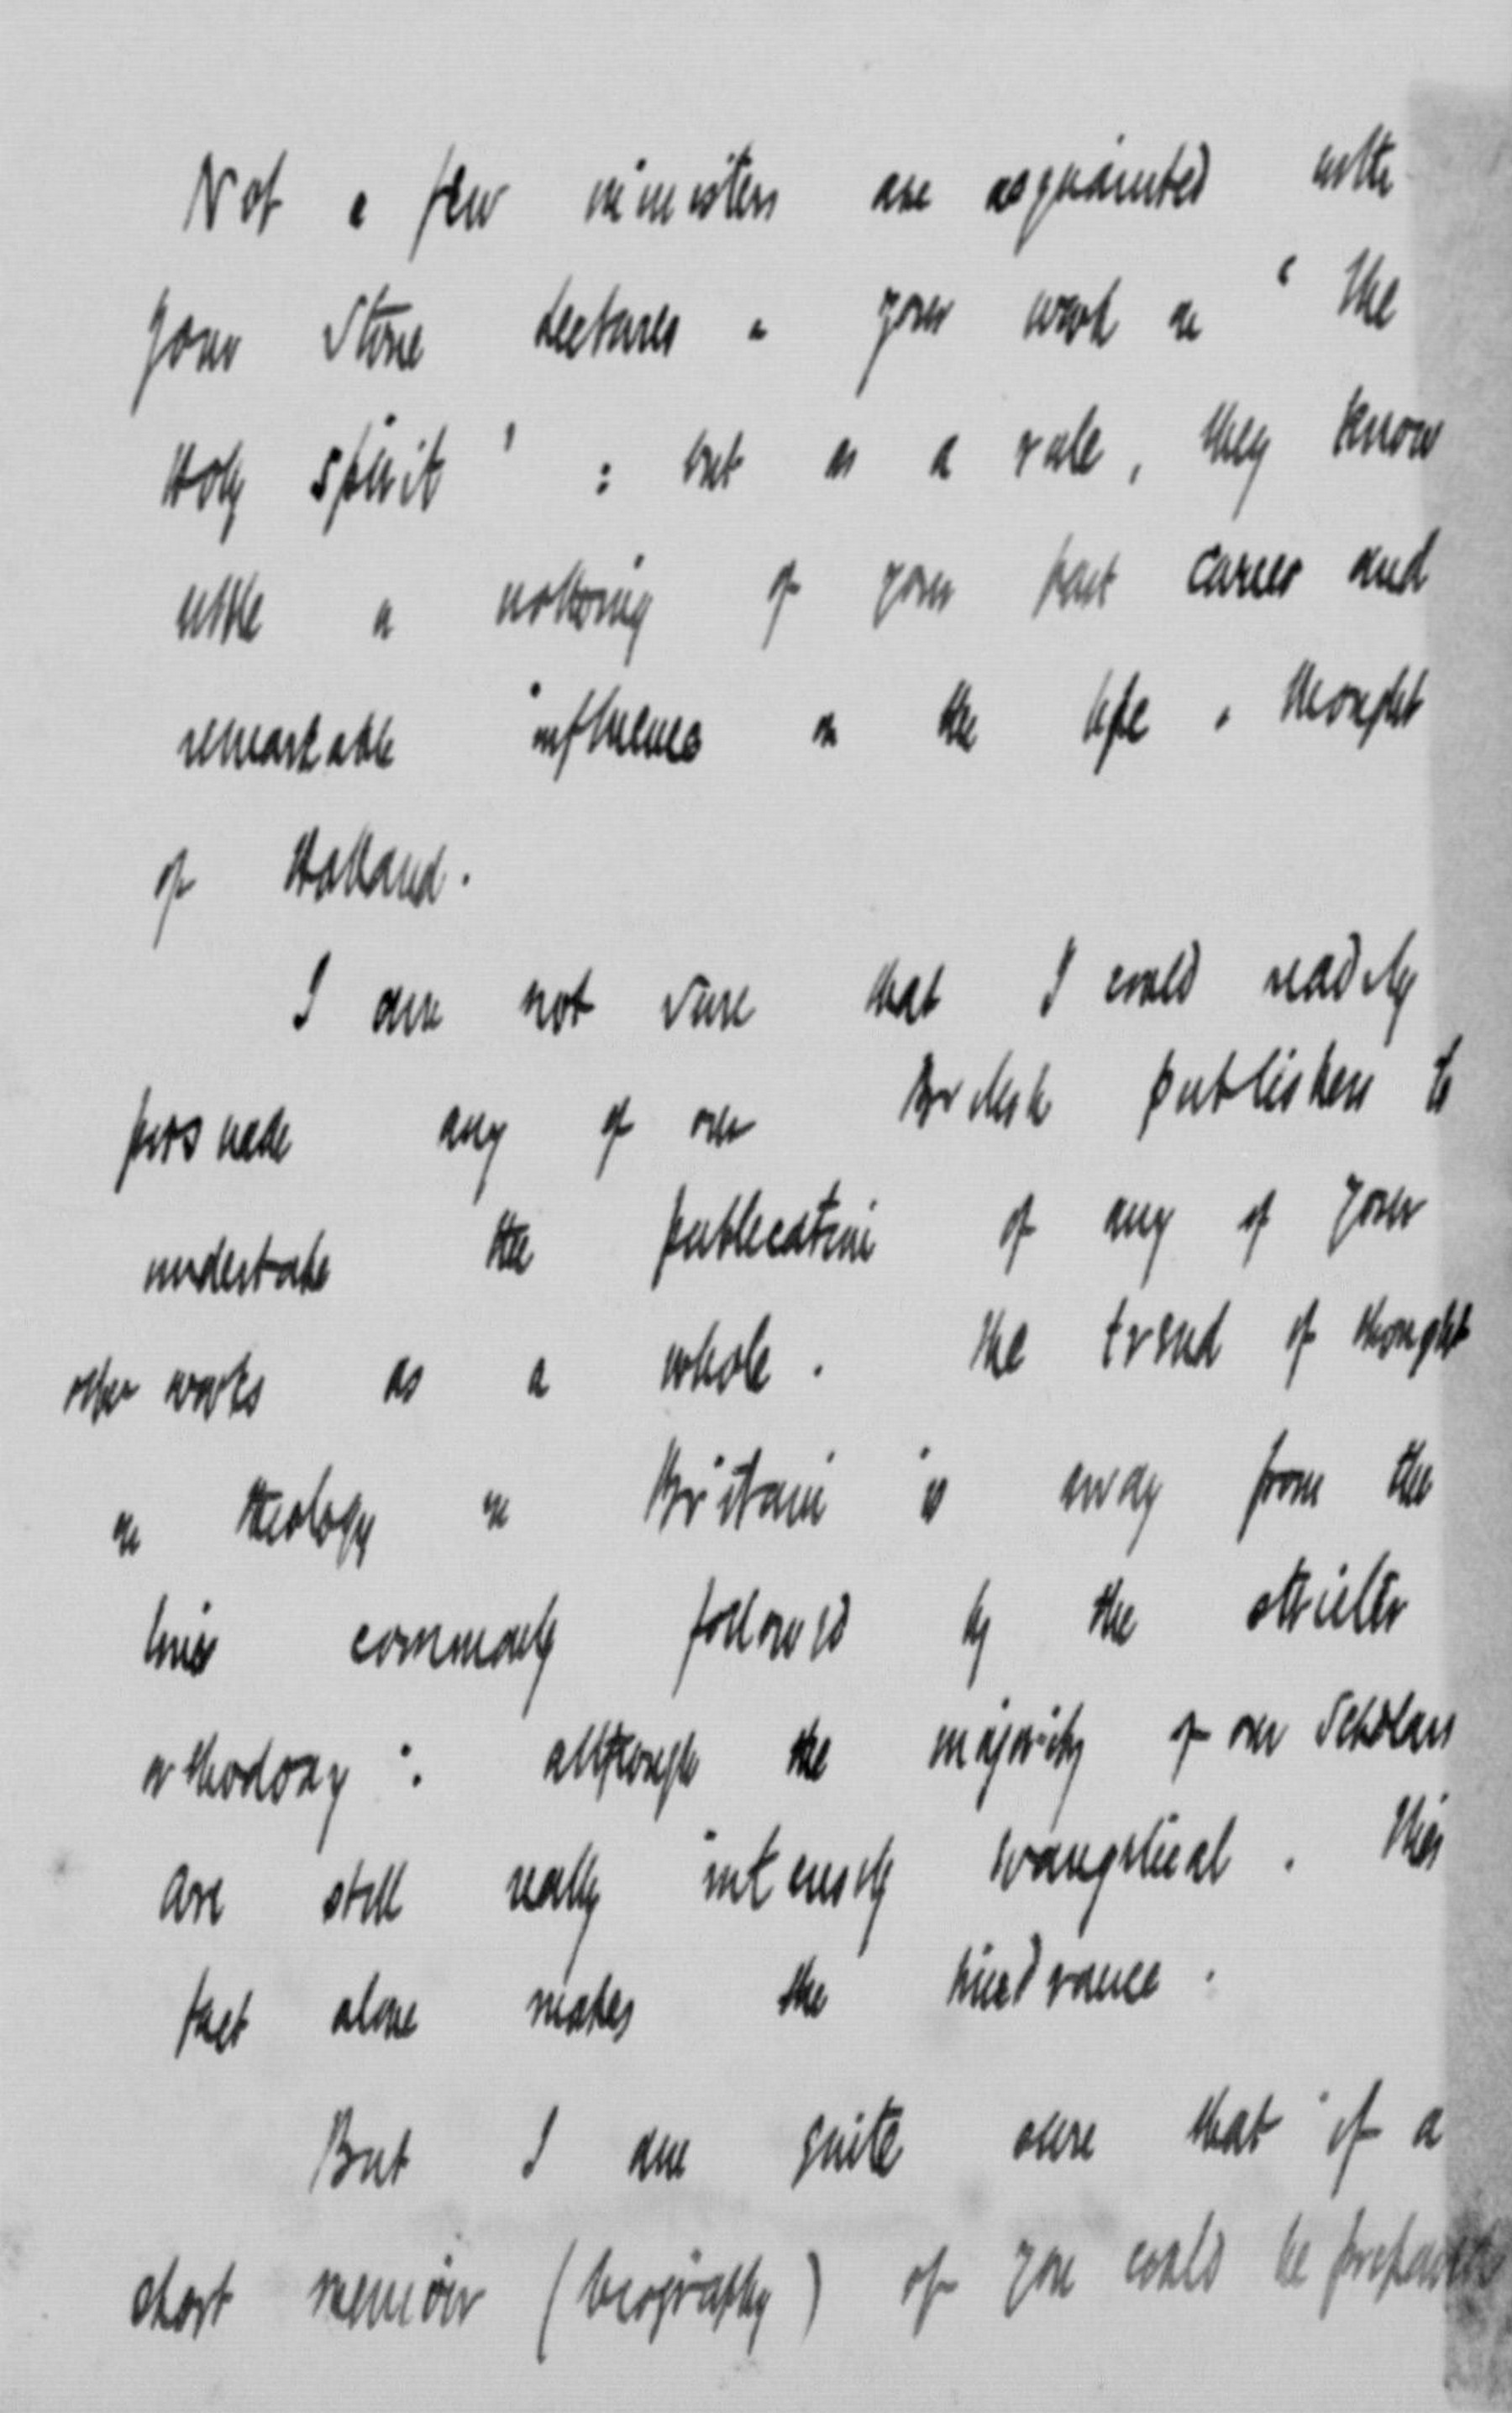 Not a few ministers are acquainted with
your Stone Lectures & your work on ‘ The
Holy Spirit ’ : but as a rule, they know
little or nothing of your past career and
remarkable influence on the life & thought
of Holland.
I am not sure that I could readily
persuade any of our British publishers to
undertake the publication of any of your
other works as a whole. The trend of thought
in theology in Britain is away from the
lines commonly followed by the stricter
orthodoxy : although the majority of our Scholars
are still really intensely evangelical. This
fact alone makes the hindrance.
But I am quite sure that if a
short memoir (biography) of you could be prepared